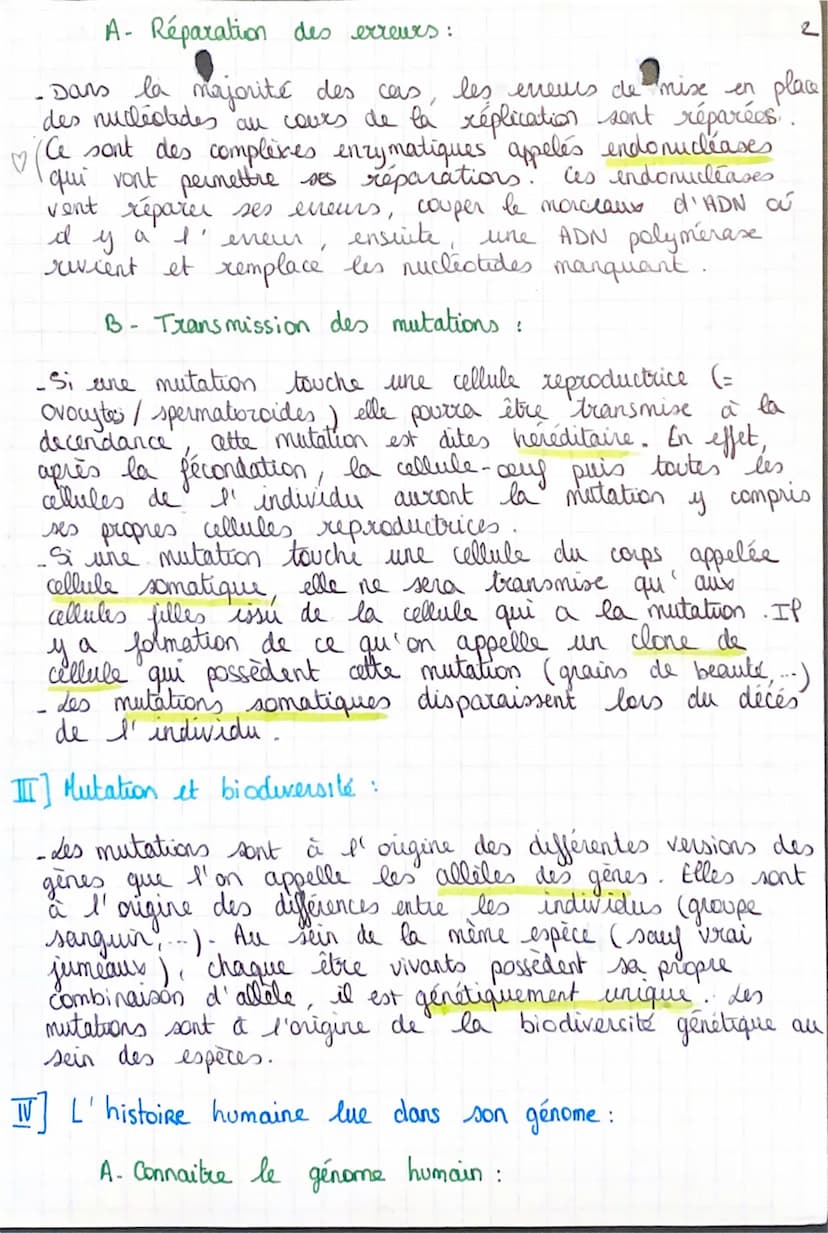 A- Réparation des erreurs :
2
- Dans la majorité des cas, les erreurs de mise en place
des nucléotides au cours de la réplication sont réparées.
Ce sont des complexes enzymatiques appelés endonucléases
qui vont permettre ses réparations. Ces endonucléases
vont réparer ses erreurs, couper le morceaux d'ADN où
il y a l'erreur, ensuite, une ADN polymérase
revient et remplace les nucléotides manquant.
B- Transmission des mutations :
- Si une mutation touche une cellule reproductrice (=
ovocytes / spermatozoïdes) elle pourra être transmise à la
decendance, cette mutation est dites héréditaire. En effet,
après la fécondation, la cellule-œuf puis toutes les
cellules de l'individu auront la mutation y compris
ses propres cellules reproductrices.
- Si une mutation touche une cellule du corps appelée
cellule somatique, elle ne sera transmise qu'aux
cellules filles issu de la cellule qui a la mutation. Il
y a formation de ce qu'on appelle un clone de
cellule qui possèdent cette mutation (grains de beauté, ...)
- Les mutations somatiques disparaissent lors du décés
de l'individu.
III] Mutation et biodiversité :
- Les mutations sont à l'origine des différentes versions des
gènes que l'on appelle les allèles des gènes. Elles sont
à l'origine des différences entre les individus (groupe
sanguin, ...). Au sein de la même espèce (sauf vrai
jumeaux), chaque être vivants possèdent sa propre
combinaison d'allèle, il est génétiquement unique. Les
mutations sont à l'origine de la biodiversité génétique au
sein des espèces.
IV] L'histoire humaine lue dans son génome :
A- Connaitre le génome humain :